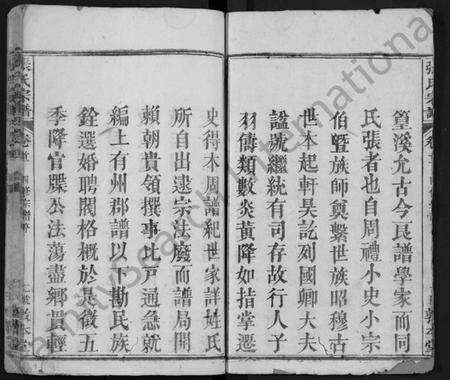 張氏宗譜
篁溪允古今民譜學家而同
氏張者也自周禮小史小宗
伯曁族師奠繫世族昭穆古
世本起軒昊訖列國卿大夫
諡號繼統有司存故行人子
羽儔類數炎黃降如指掌遷
史得本周譜紀世家詳姓氏
所自出逮宗法廢而譜局開
賴朝貴領撰事比戸通急就
編上有州郡譜以下勘民族
銓選婚聘閥格概於是徵五
季降官牒公法蕩盡鄉貫輕
張氏宗譜
卷首
敦本堂